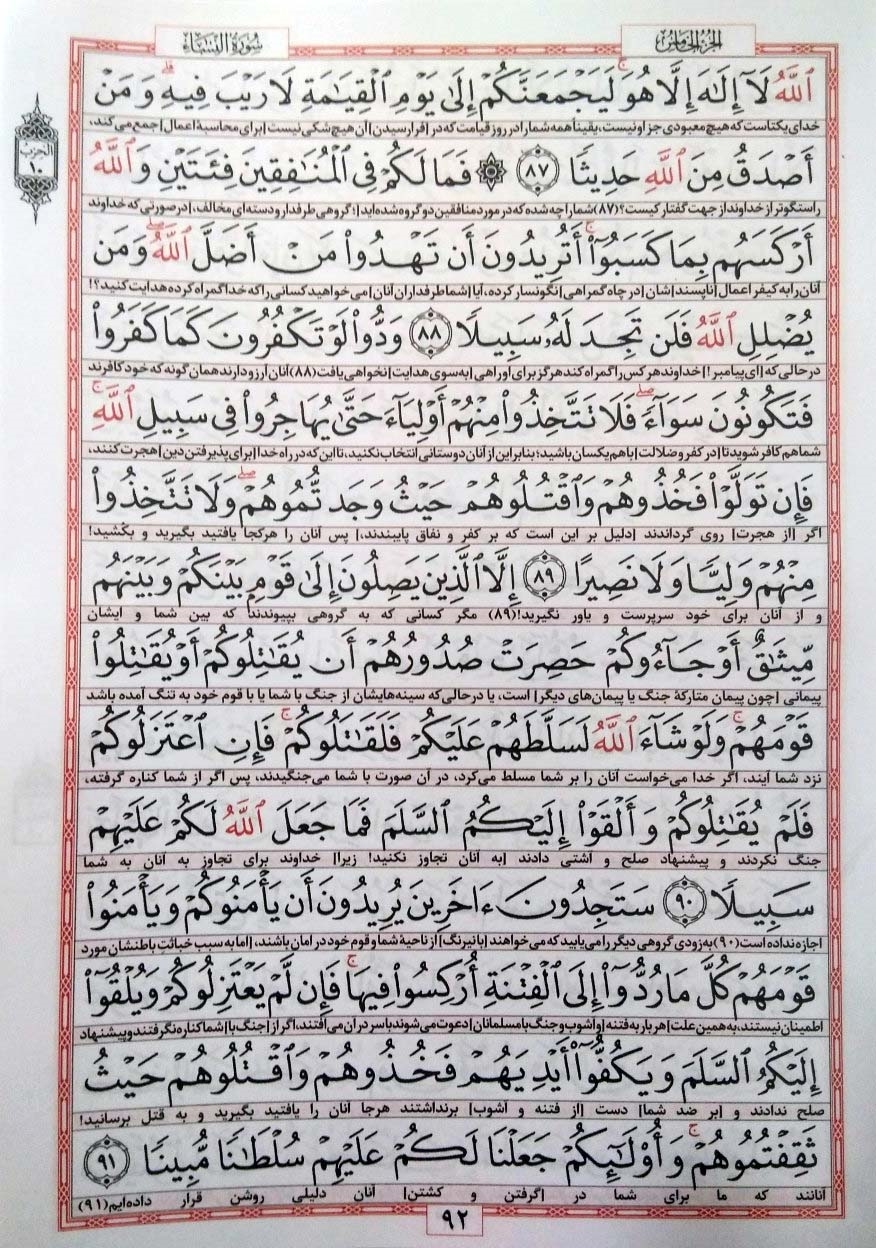 الجزء الخامس
سورة النساء
الحزب
۱۰
ٱللَّهُ لَآ إِلَٰهَ إِلَّا هُوَ لَيَجْمَعَنَّكُمْ إِلَىٰ يَوْمِ ٱلْقِيَٰمَةِ لَا رَيْبَ فِيهِ وَمَنْ
خدای یکتاست که هیچ معبودی جز او نیست، یقیناً همه شما را در روز قیامت که در [فرارسیدن] آن هیچ شکی نیست [برای محاسبهٔ اعمال] جمع می‌کند،
أَصْدَقُ مِنَ ٱللَّهِ حَدِيثًا ﴿۸۷﴾ ۞ فَمَا لَكُمْ فِى ٱلْمُنَٰفِقِينَ فِئَتَيْنِ وَٱللَّهُ
راستگوتر از خداوند از جهت گفتار کیست؟(۸۷) شما را چه شده که در مورد منافقین دو گروه شده‌اید [؛ گروهی طرفدار و دسته‌ای مخالف،] در صورتی که خداوند
أَرْكَسَهُم بِمَا كَسَبُوٓا۟ أَتُرِيدُونَ أَن تَهْدُوا۟ مَنْ أَضَلَّ ٱللَّهُ وَمَن
آنان را به کیفر اعمال [ناپسند] شان [در چاه گمراهی] نگونسار کرده، آیا [شما طرفداران آنان] می‌خواهید کسانی را که خدا گمراه کرده هدایت کنید؟!
يُضْلِلِ ٱللَّهُ فَلَن تَجِدَ لَهُۥ سَبِيلًا ﴿۸۸﴾ وَدُّوا۟ لَوْ تَكْفُرُونَ كَمَا كَفَرُوا۟
در حالی که [ای پیامبر!] خداوند هر کس را گمراه کند هرگز برای او راهی [به سوی هدایت] نخواهی یافت(۸۸) آنان آرزو دارند همان گونه که خود کافرند
فَتَكُونُونَ سَوَآءً فَلَا تَتَّخِذُوا۟ مِنْهُمْ أَوْلِيَآءَ حَتَّىٰ يُهَاجِرُوا۟ فِى سَبِيلِ ٱللَّهِ
شما هم کافر شوید تا [در کفر و ضلالت] باهم یکسان باشید؛ بنابراین از آنان دوستانی انتخاب نکنید، تا این که در راه خدا [برای پذیرفتن دین] هجرت کنند،
فَإِن تَوَلَّوْا۟ فَخُذُوهُمْ وَٱقْتُلُوهُمْ حَيْثُ وَجَدتُّمُوهُمْ وَلَا تَتَّخِذُوا۟
اگر [از هجرت] روی گرداندند [دلیل بر این است که بر کفر و نفاق پایبندند،] پس آنان را هرکجا یافتید بگیرید و بکُشید!
مِنْهُمْ وَلِيًّا وَلَا نَصِيرًا ﴿۸۹﴾ إِلَّا ٱلَّذِينَ يَصِلُونَ إِلَىٰ قَوْمٍۭ بَيْنَكُمْ وَبَيْنَهُم
و از آنان برای خود سرپرست و یاور نگیرید!(۸۹) مگر کسانی که به گروهی بپیوندند که بین شما و ایشان
مِّيثَٰقٌ أَوْ جَآءُوكُمْ حَصِرَتْ صُدُورُهُمْ أَن يُقَٰتِلُوكُمْ أَوْ يُقَٰتِلُوا۟
پیمانی [چون پیمان متارکهٔ جنگ یا پیمان‌های دیگر] است، یا درحالی که سینه‌هایشان از جنگ با شما یا با قوم خود به تنگ آمده باشد
قَوْمَهُمْ وَلَوْ شَآءَ ٱللَّهُ لَسَلَّطَهُمْ عَلَيْكُمْ فَلَقَٰتَلُوكُمْ فَإِنِ ٱعْتَزَلُوكُمْ
نزد شما آیند، اگر خدا می‌خواست آنان را بر شما مسلط می‌کرد، در آن صورت با شما می‌جنگیدند، پس اگر از شما کناره گرفته،
فَلَمْ يُقَٰتِلُوكُمْ وَأَلْقَوْا۟ إِلَيْكُمُ ٱلسَّلَمَ فَمَا جَعَلَ ٱللَّهُ لَكُمْ عَلَيْهِمْ
جنگ نکردند و پیشنهاد صلح و آشتی دادند [به آنان تجاوز نکنید! زیرا] خداوند برای تجاوز به آنان به شما
سَبِيلًا ﴿۹۰﴾ سَتَجِدُونَ ءَاخَرِينَ يُرِيدُونَ أَن يَأْمَنُوكُمْ وَيَأْمَنُوا۟
اجازه نداده است(۹۰) به زودی گروهی دیگر را می‌یابید که می‌خواهند [با نیرنگ] از ناحیهٔ شما و قوم خود در امان باشند، [اما به سبب خباثتِ باطنشان مورد
قَوْمَهُمْ كُلَّ مَا رُدُّوٓا۟ إِلَى ٱلْفِتْنَةِ أُرْكِسُوا۟ فِيهَا فَإِن لَّمْ يَعْتَزِلُوكُمْ وَيُلْقُوٓا۟
اطمینان نیستند، به همین علت] هر بار به فتنه [و آشوب و جنگ با مسلمانان] دعوت می‌شوند با سر در آن می‌افتند، اگر از [جنگ با] شما کناره نگرفتند و پیشنهاد
إِلَيْكُمُ ٱلسَّلَمَ وَيَكُفُّوٓا۟ أَيْدِيَهُمْ فَخُذُوهُمْ وَٱقْتُلُوهُمْ حَيْثُ
صلح ندادند و [بر ضد شما] دست [از فتنه و آشوب] برنداشتند هرجا آنان را یافتید بگیرید و به قتل برسانید!
ثَقِفْتُمُوهُمْ وَأُو۟لَٰٓئِكُمْ جَعَلْنَا لَكُمْ عَلَيْهِمْ سُلْطَٰنًا مُّبِينًا ﴿۹۱﴾
آنانند که ما برای شما در [گرفتن و کشتن] آنان دلیلی روشن قرار داده‌ایم(۹۱)
۹۲